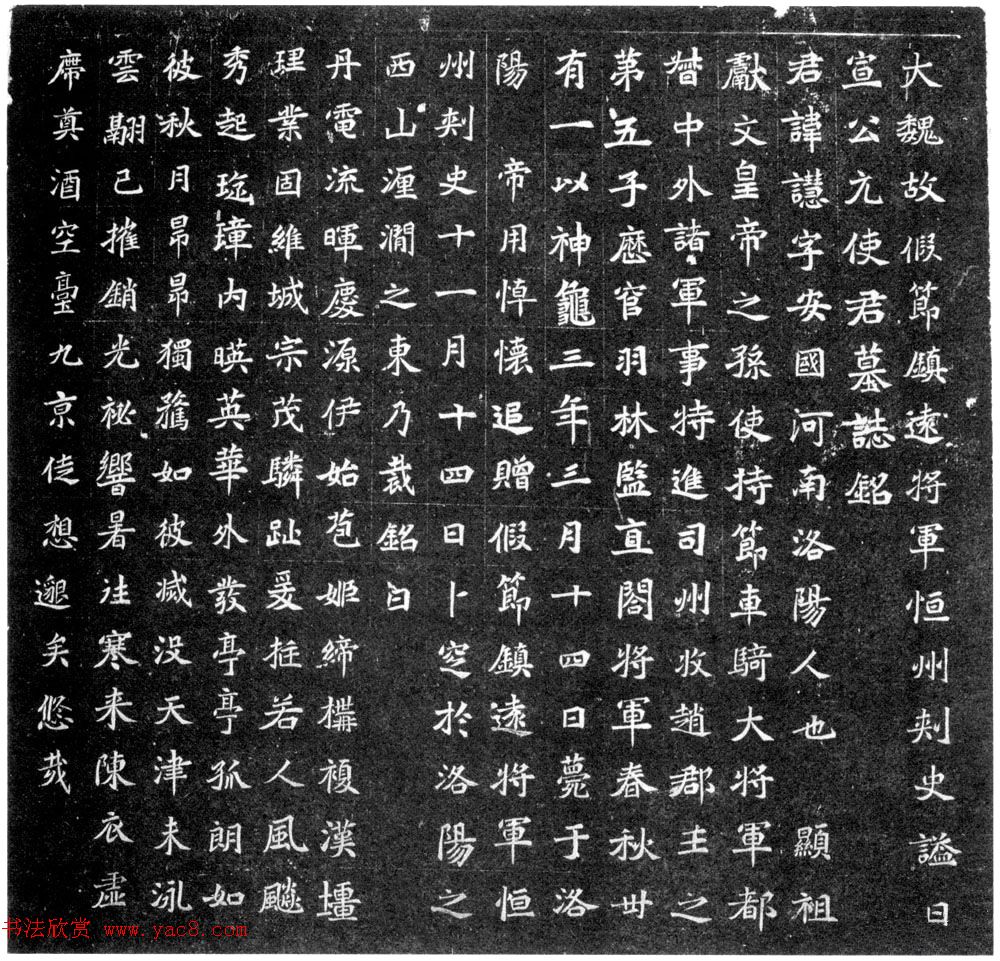 大魏故假節鎮遠將軍恒州刾史謚曰
宣公元使君墓誌銘
君諱譿字安國河南洛陽人也 顯祖
獻文皇帝之孫使持節車騎大將軍都
督中外諸軍事特進司州牧趙郡王之
第五子歷官羽林監直閤將軍春秋卌
有一以神龜三年三月十四日薨于洛
陽 帝用悼懷追贈假節鎮遠將軍恒
州刾史十一月十四日卜窆於洛陽之
西山瀍澗之東乃裁銘曰
丹電流暉慶源伊始苞姬締構複漢壃
理業固維城宗茂驎趾爰挺若人風飈
秀起琁璋內暎英華外發亭亭孤朗如
彼秋月昂昂獨騖如彼滅没天津未泳
雲翮已摧銷光祕響暑往寒来陳衣虛
席奠酒空臺九京徒想邈矣悠哉
书法欣赏 www.yac8.com